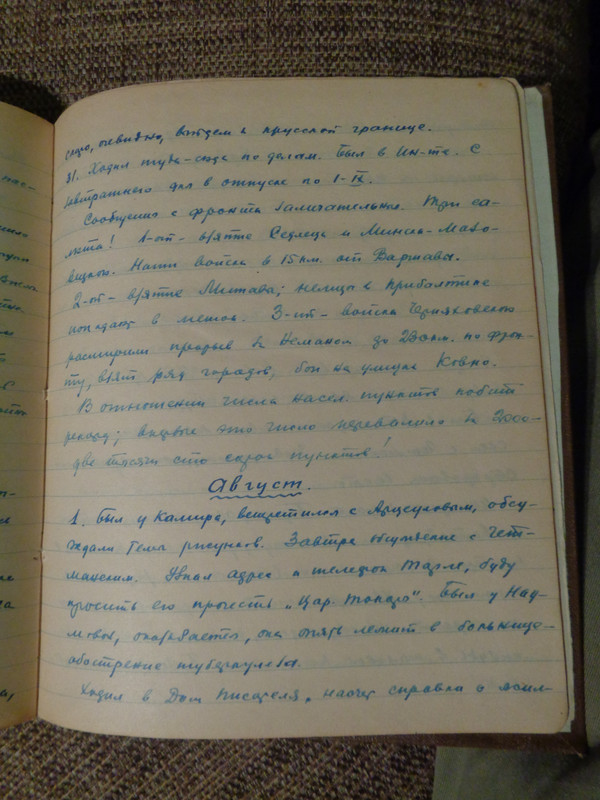 скую, очевидно, выйдем к прусской границе.
31. Ходил туда-сюда по делам. Был в Ин-те. С
завтрашнего дня в отпуске по 1-IX.
Сообщение с фронта замечательные. Три са-
люта! 1-ый - взятие Седлеца и Минск-Мазо-
вецкого. Наши войска в 15 км. от Варшавы.
2-ой - взятие Митавы; немцы в Прибалтике
попадают в мешок. 3-ий - войска Черняховского
расширили прорыв за Неманом до 230 км. по фрон-
ту, взят ряд городов, бои на улицах Ковно.
В отношении числа насел. пунктов побит
рекорд; впервые это число перевалило за 2000-
две тысячи сто сорок пунктов!
Август.
1. Был у Калмыра, встретился с обсу-
ждали темы рисунков. Завтра обсуждение с Гет-
манским. Узнал адрес и телефон Тарле, буду
просить его прочесть „Цар. Токаря". Был у Над-
оказывается, она опять лежит в больнице-
обострение туберкулеза.
Ходил в Дом Писателя, насчет справки о жил-